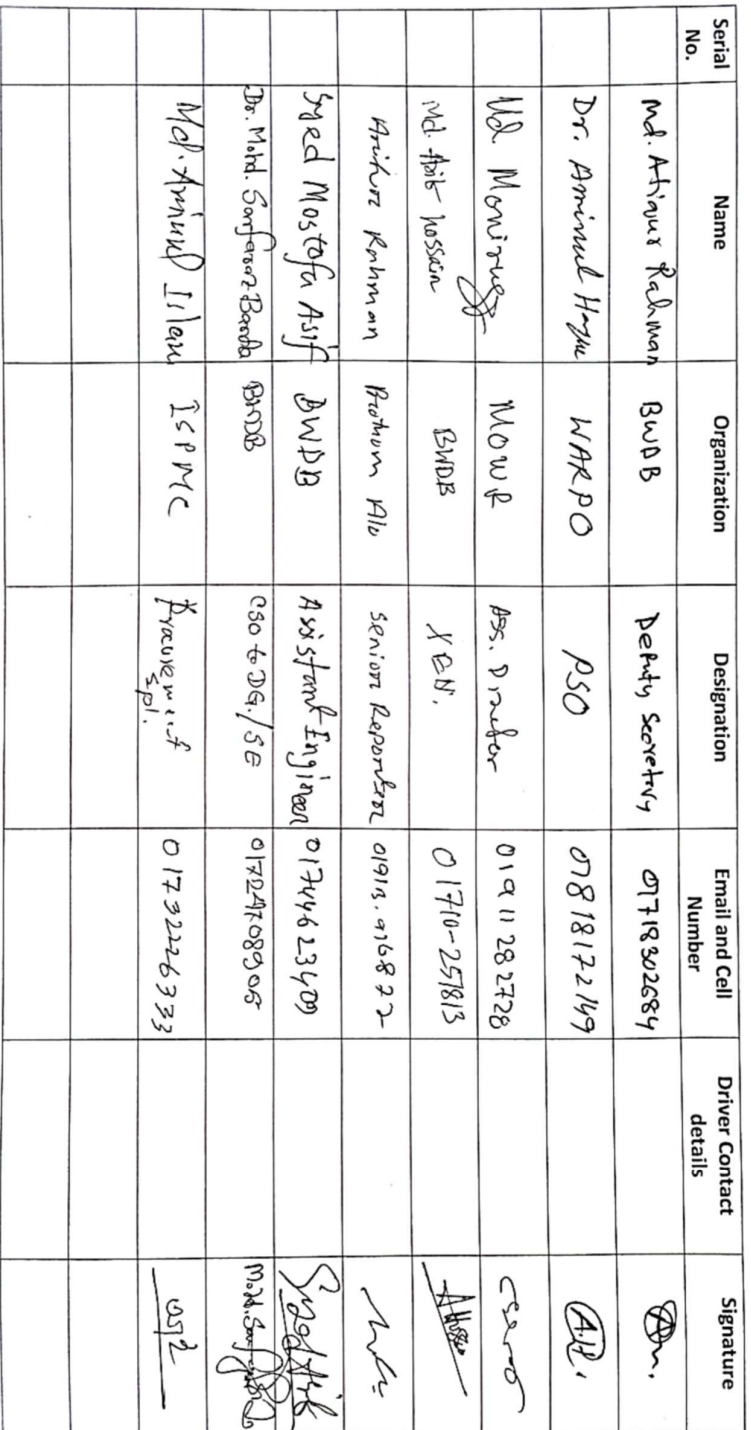 Serial No. Name Organization Designation Email and Cell Number Driver Contact details Signature
Md. Atiqur Rahman BWDB Deputy Secretary 01718302684
Dr. Aminul Haque WARPO PSO 01818172149
Md. Moniruzz MOWR Ass. Director 01911282728
Md. Abib hossain BWDB XEN. 01710-251813 AHossain
Arifur Rahman Prothom Alo Senior Reporter
Syed Mostofa Asif BWDB Assistant Engineer 01744623409 Syed Asif
Dr. Mohd. Sarfaraz Banda BWDB CSO to DG./SE
Md. Aminul Islam ISPMC Procurement Spl. 01732226333